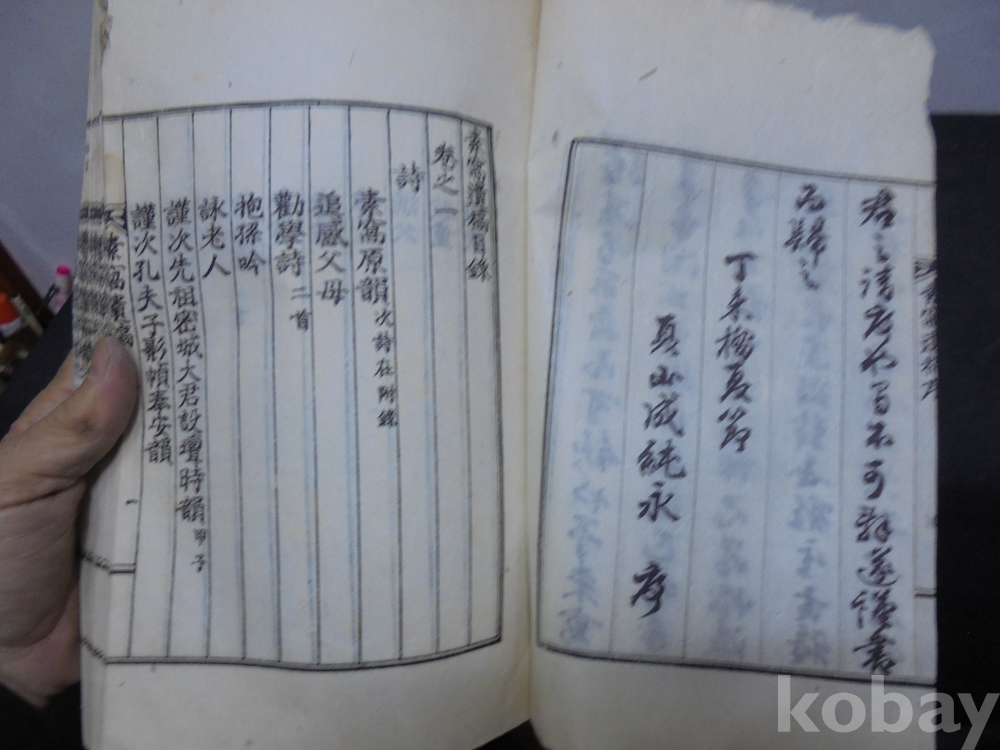 君之請序也而不可辭遂謹書
而歸之
丁未梅夏節
夏山成純永 序
素窩漬稿目錄
卷之一
詩
素窩原韻 次詩在附錄
追感父母
勸學詩 二首
抱孫吟
詠老人
謹次先祖密城大君設壇時韻 甲子
謹次孔夫子影幀奉安韻
一
kobay